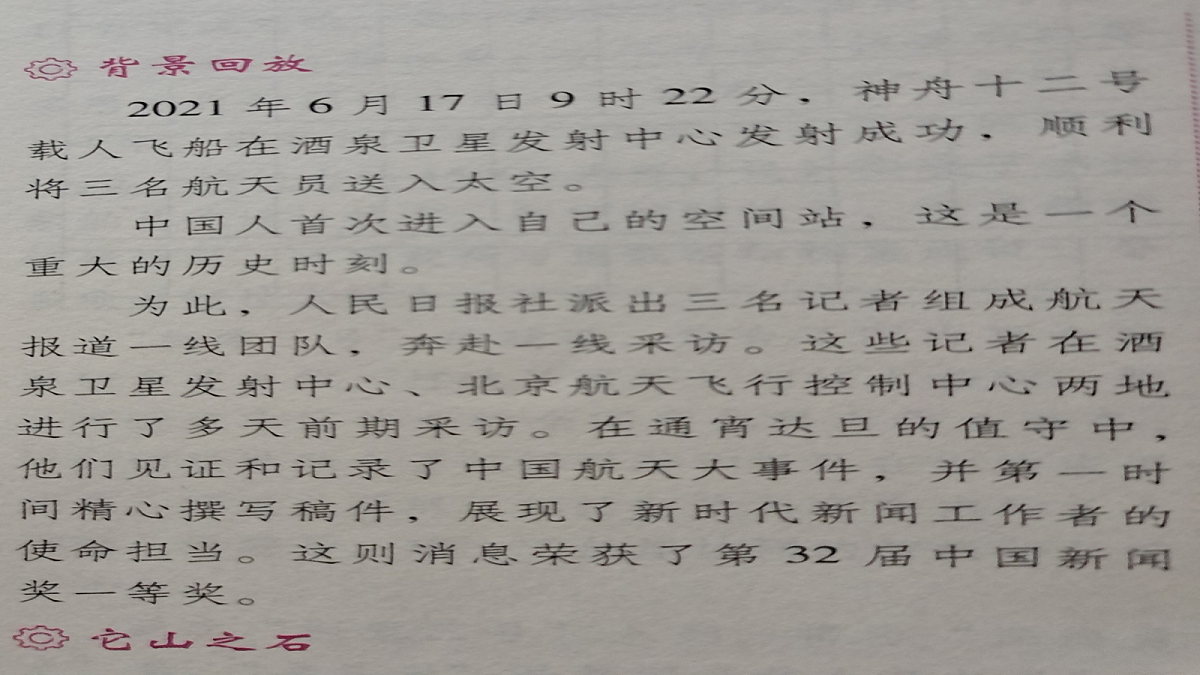 背景回放
2021年6月17日9时22分，神舟十二号
载人飞船在酒泉卫星发射中心发射成功，顺利
将三名航天员送入太空。
中国人首次进入自己的空间站，这是一个
重大的历史时刻。
为此，人民日报社派出三名记者组成航天
报道一线团队，奔赴一线采访。这些记者在酒
泉卫星发射中心、北京航天飞行控制中心两地
进行了多天前期采访。在通宵达旦的值守中，
他们见证和记录了中国航天大事件，并第一时
间精心撰写稿件，展现了新时代新闻工作者的
使命担当。这则消息荣获了第32届中国新闻
奖一等奖。
它山之石